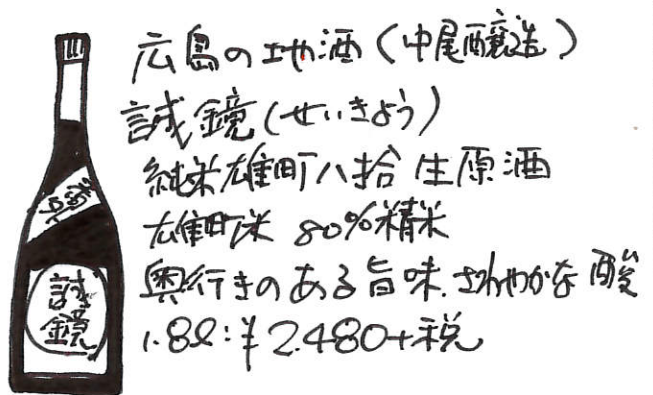 広島の地酒(中尾醸造)
誠鏡(せいきょう)
純米雄町八拾 生原酒
雄町米 80%精米
奥行きのある旨味、さわやかな酸
1.8ℓ:¥2.480+税
誠
鏡